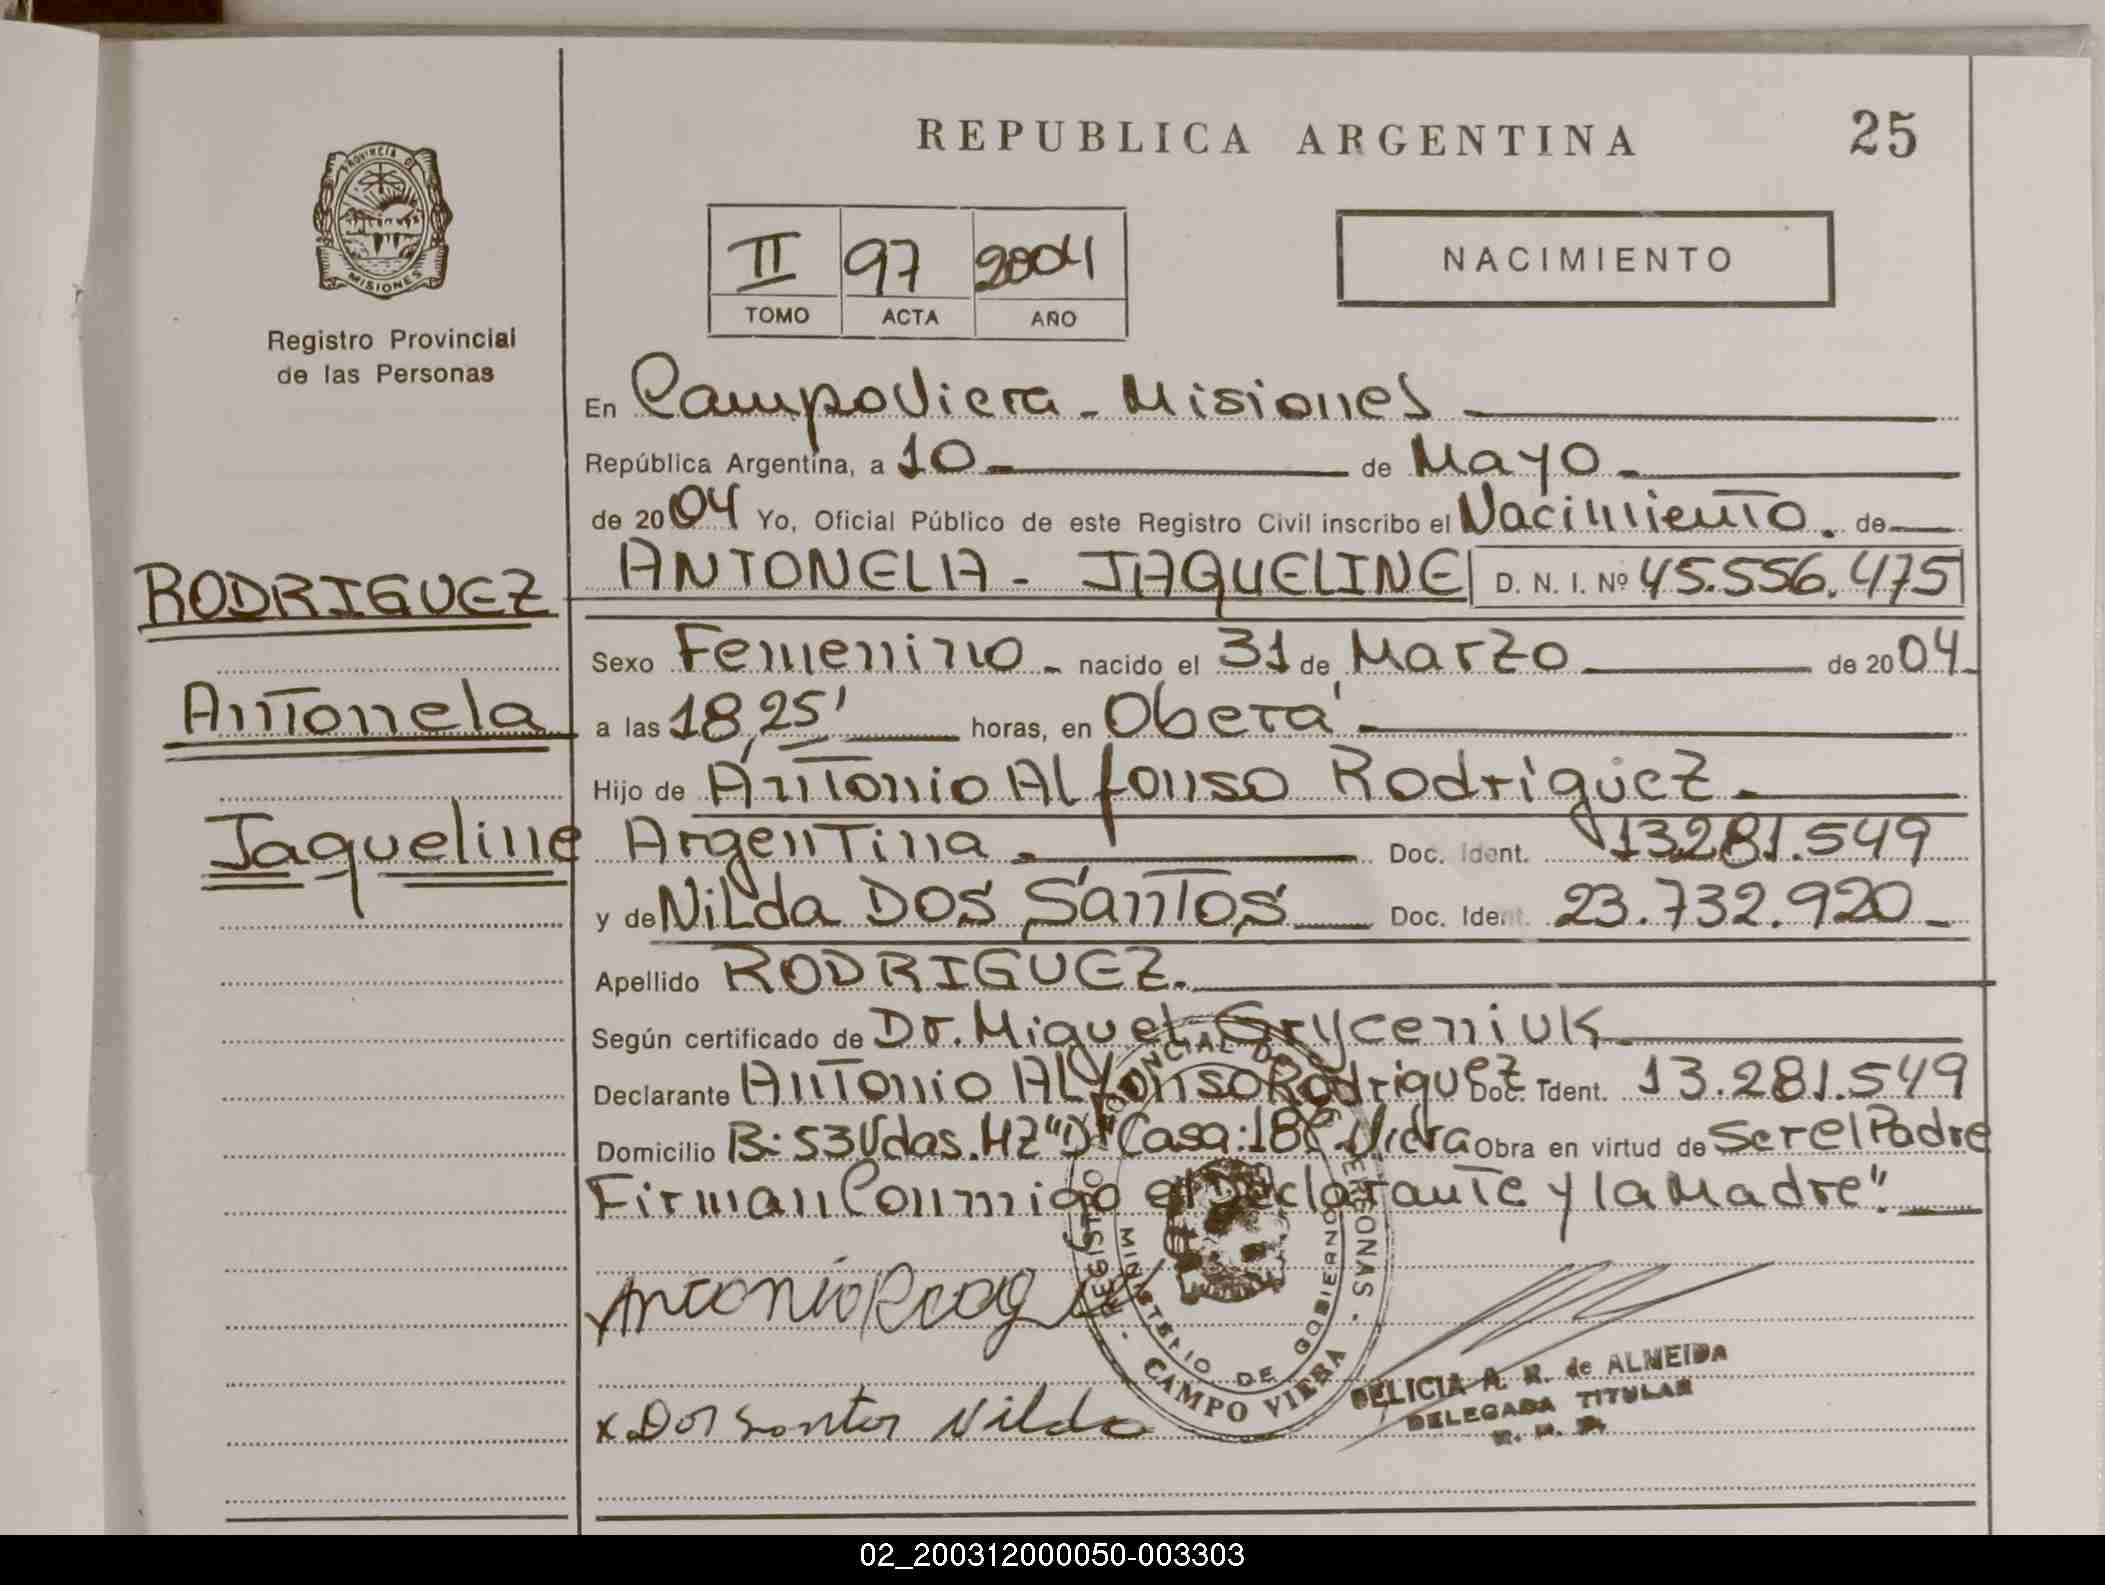 REPUBLICA ARGENTINA
25
PROVINCIA DE
MISIONES
Registro Provincial
de las Personas
II 97 2004
TOMO ACTA AÑO
NACIMIENTO
En Campo Viera - Misiones
República Argentina, a 10 de Mayo
de 2004 Yo, Oficial Público de este Registro Civil inscribo el Nacimiento. de
RODRIGUEZ
Antonela
Jaqueline
ANTONELA - JAQUELINE D. N. I. Nº 45.556.475
Sexo Femenino nacido el 31 de Marzo de 2004
a las 18,25' horas, en Oberá
Hijo de Antonio Alfonso Rodriguez
Argentina Doc. Ident. 13.281.549
y de Nilda DOS Santos Doc. Ident. 23.732.920
Apellido RODRIGUEZ.
Según certificado de Dr. Miguel Gryceniuk
Declarante Antonio Alfonso Rodriguez Doc. Ident. 13.281.549
Domicilio B: 53 Vdas. MZ "D" Casa: 18 C. Viera Obra en virtud de Ser el Padre
Firman Conmigo el Declarante y la Madre".
Antonio
x Dos Santos Nilda
REGISTRO PROVINCIAL DE LAS PERSONAS
MINISTERIO DE GOBIERNO
CAMPO VIERA
DELICIA A. R. de ALMEIDA
DELEGADA TITULAR
R. P. P.
02_200312000050-003303